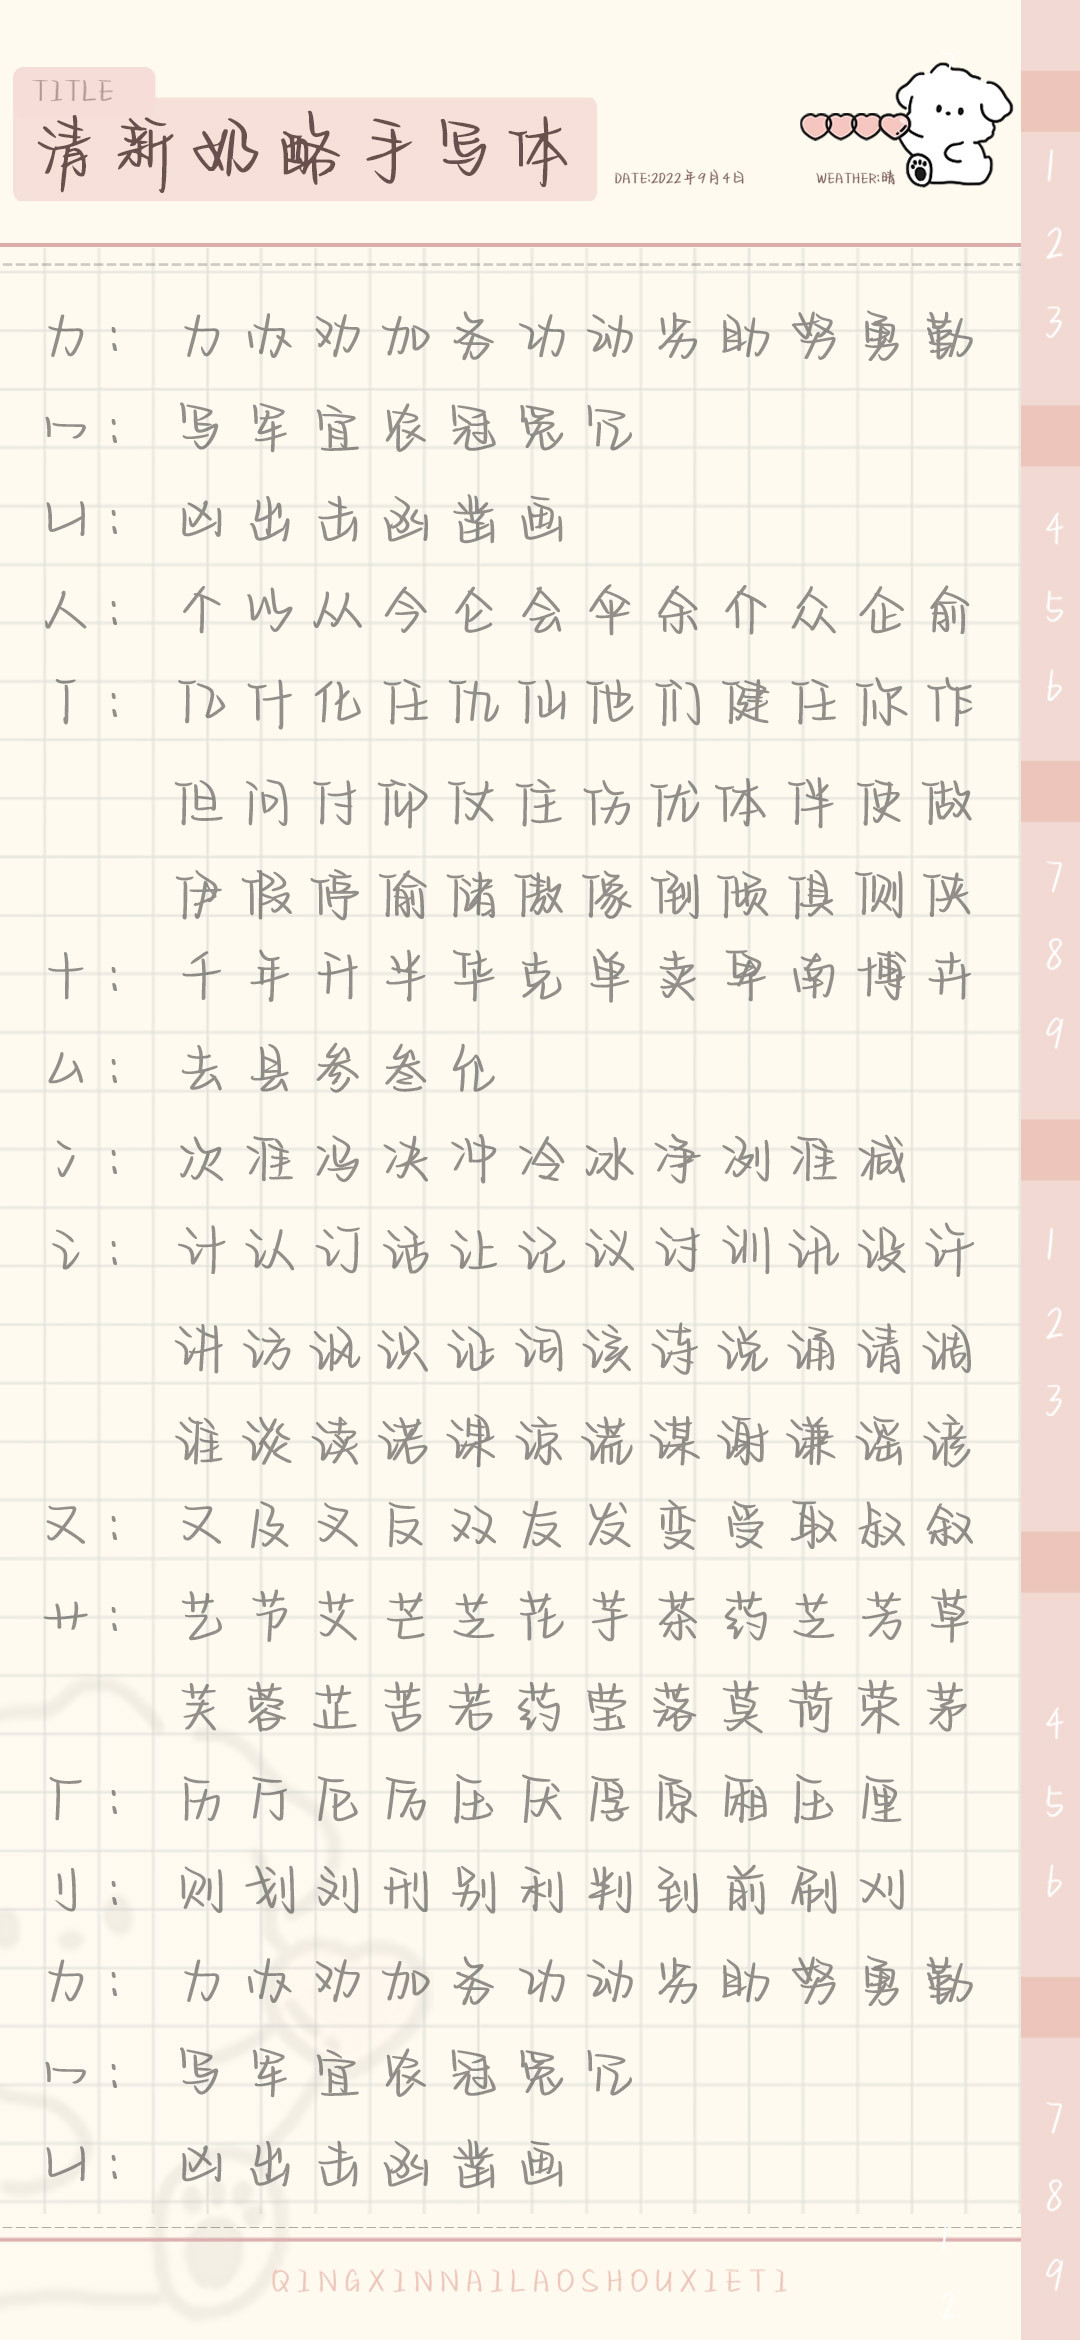 TITLE
清新奶酪手写体
DATE:2022年9月4日
WEATHER:晴
力： 力 办 劝 加 务 功 动 劣 助 努 勇 勤
冖： 写 军 宜 农 冠 冕 冗
凵： 凶 出 击 函 凿 画
人： 个 以 从 今 仑 会 伞 余 介 众 企 俞
亻： 亿 什 化 任 仇 仙 他 们 健 任 你 作
但 问 付 仰 仗 住 伤 优 体 伴 使 做
伊 假 停 偷 储 傲 傢 倒 倾 俱 侧 侠
十： 千 年 升 半 华 克 单 卖 卑 南 博 卉
厶： 去 县 参 叁 允
冫： 次 准 冯 决 冲 冷 冰 净 冽 准 减
讠： 计 认 订 话 让 记 议 讨 训 讯 设 许
讲 访 讽 识 证 词 该 诗 说 诵 请 调
谁 谈 读 诺 课 谅 谎 谋 谢 谦 谣 谚
又： 又 及 叉 反 双 友 发 变 受 取 叔 叙
艹： 艺 节 艾 芒 芝 花 芋 茶 药 芝 芳 草
芙 蓉 芷 苦 若 药 莹 落 莫 荷 荣 茅
厂： 历 厅 厄 厉 压 厌 厚 原 厢 压 厘
刂： 则 划 刘 刑 别 利 判 到 前 刷 刈
力： 力 办 劝 加 务 功 动 劣 助 努 勇 勤
冖： 写 军 宜 农 冠 冕 冗
凵： 凶 出 击 函 凿 画
QINGXINNAILAOSHOUXIETI
1
2
3
4
5
6
7
8
9
1
2
3
4
5
6
7
8
9
1
2